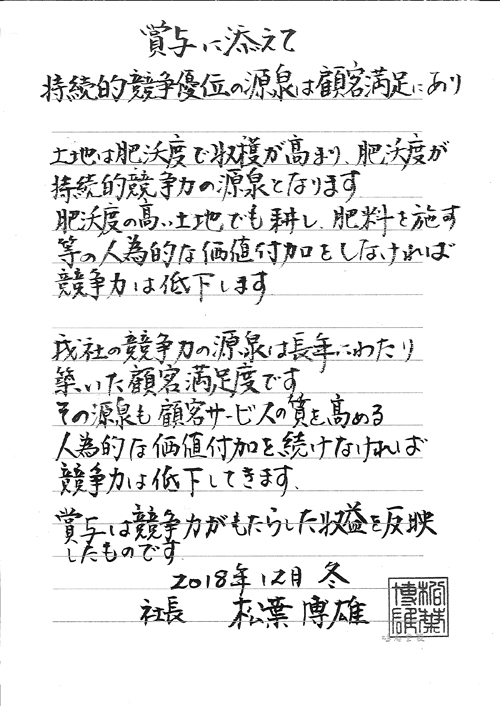 賞与に添えて
持続的競争優位の源泉は顧客満足にあり
土地は肥沃度で収穫が高まり、肥沃度が
持続的競争力の源泉となります
肥沃度の高い土地でも耕し、肥料を施す
等の人為的な価値付加をしなければ
競争力は低下します
我社の競争力の源泉は長年にわたり
築いた顧客満足度です
その源泉も顧客サービスの質を高める
人為的な価値付加を続けなければ
競争力は低下してきます、
賞与は競争力がもたらした収益を反映
したものです
2018年12月 冬
社長 松葉博雄
松葉
博雄